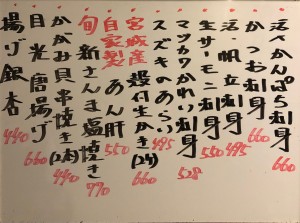 活べかんぱち刺身 660
かつおお刺身 660
活帆立刺身 495
生サーモン刺身 550
マツカワかれい刺身 528
スズキのあらい 495
宮城産 殻付生かき(2ケ) 660
自家製 あん肝 550
旬 新さんま塩焼き 770
かがみ貝串焼き(2本) 440
目光唐揚げ 660
揚げ銀杏 440